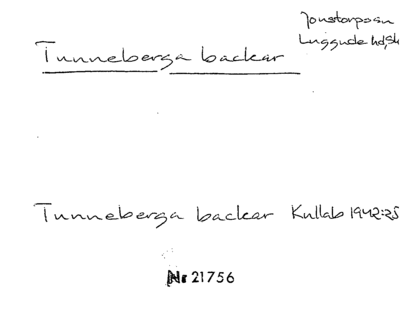 Jonstorp sn
Luggude hd, Sk
Tunneberga backar
Tunneberga backar Kullab 1942:25
Nr 21756